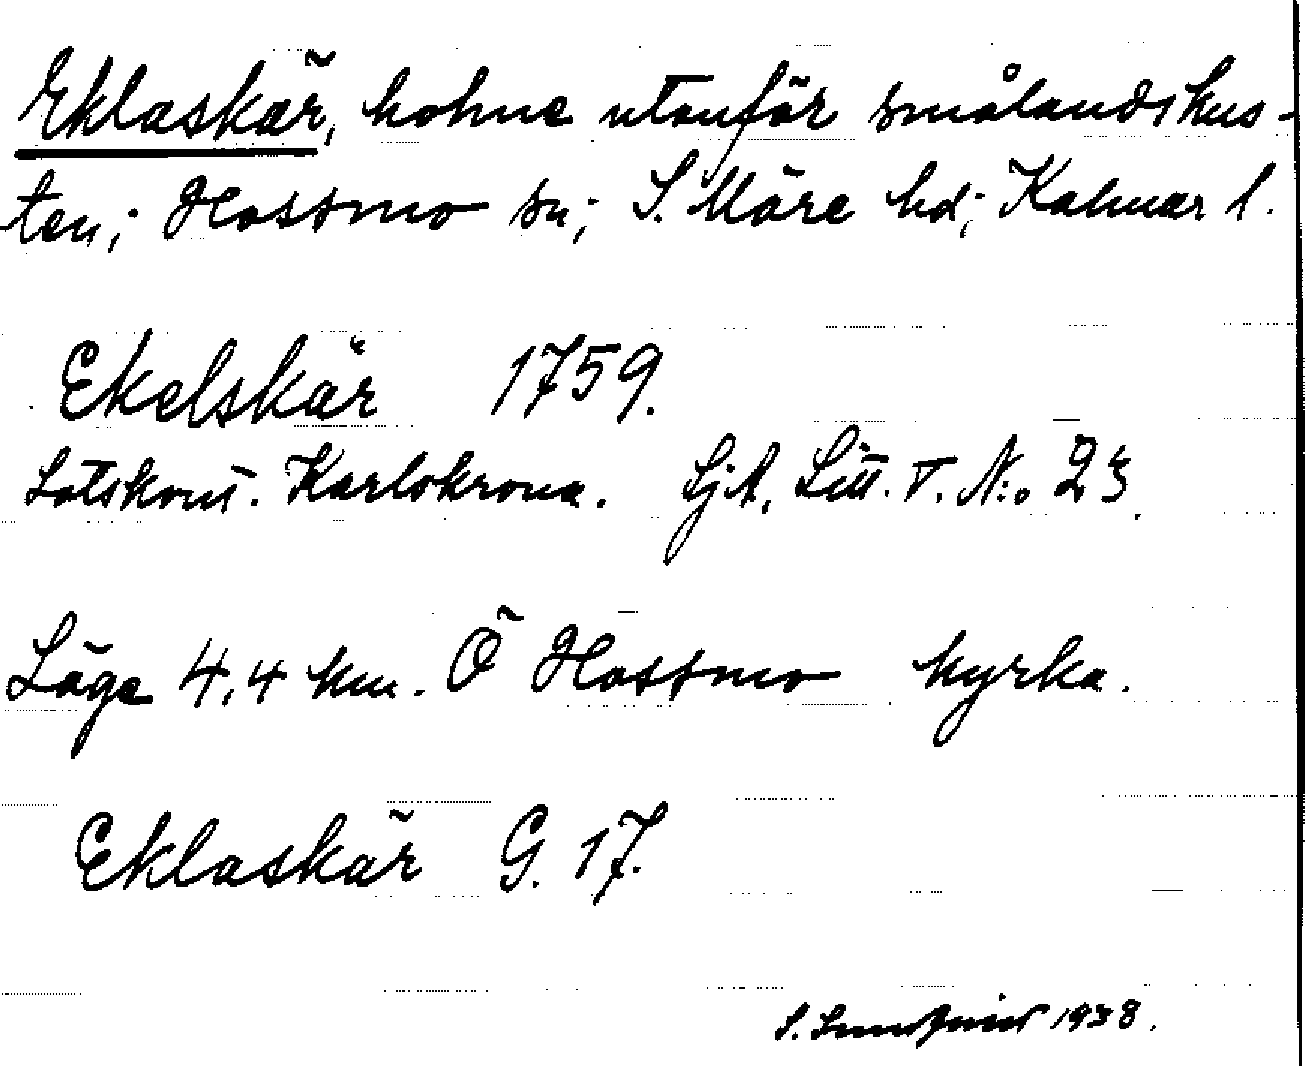 Eklaskär, holme utanför smålandskus-
ten; Hossmo sn; S. Möre hd; Kalmar l.
Ekelskär 1759.
Lotskont. Karlskrona. SjA, Litt. T. N:o 23.
Läge 4,4 km. Ö Hossmo kyrka.
Eklaskär G. 17.
S. 1938.